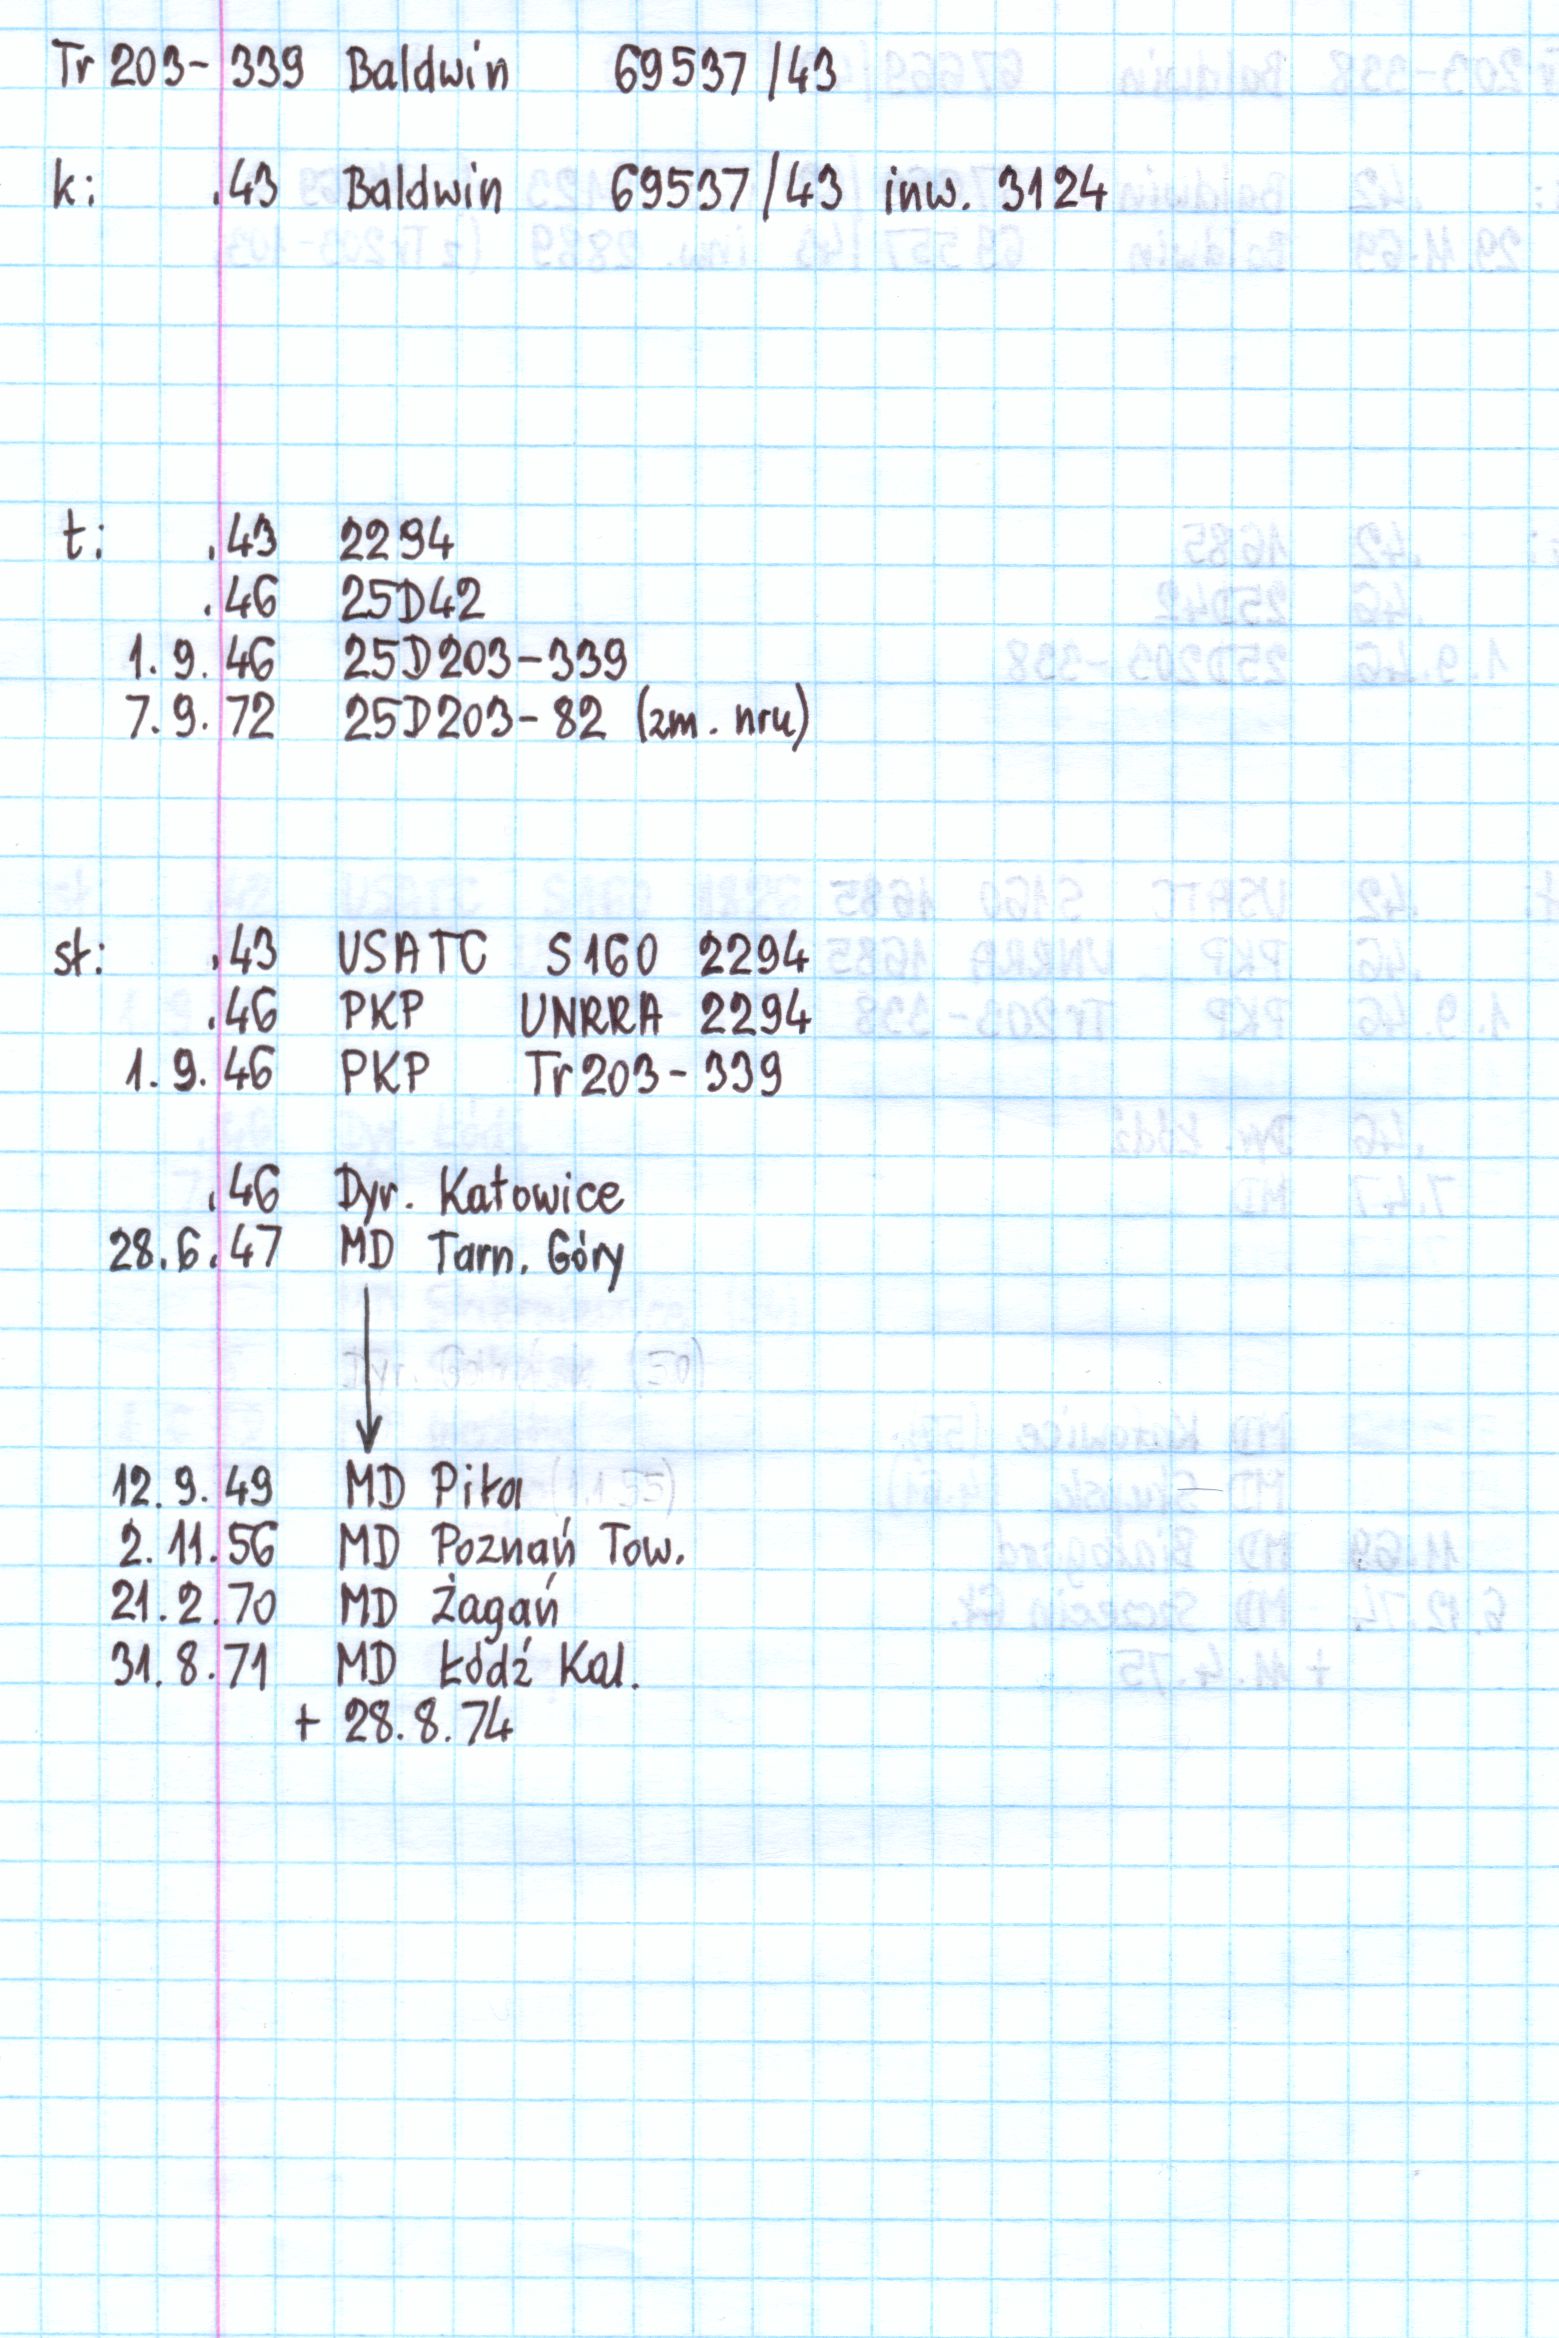 Tr 203-339 Baldwin 69537/43
k: .43 Baldwin 69537/43 inw. 3124
t: .43 2294
.46 25D42
1.9.46 25D203-339
7.9.72 25D203-82 (zm. nru)
st: .43 USATC S160 2294
.46 PKP UNRRA 2294
1.9.46 PKP Tr203-339
.46 Dyr. Katowice
28.6.47 MD Tarn. Góry
12.9.49 MD Piła
2.11.56 MD Poznań Tow.
21.2.70 MD Żagań
31.8.71 MD Łódź Kal.
+ 28.8.74